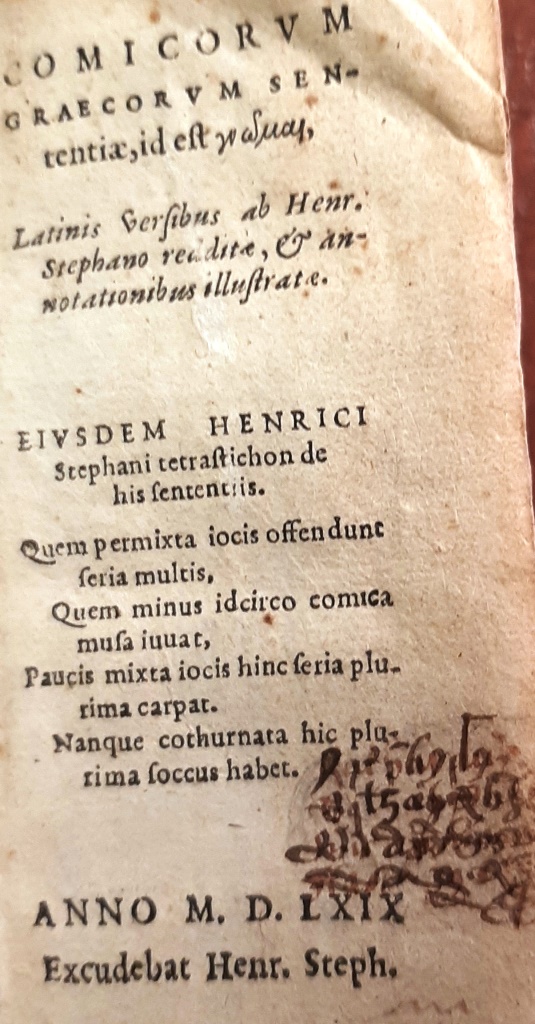 COMICORVM
GRAECORVM SEN-
tentiæ, id est γνῶμαι,
Latinis versibus ab Henr.
Stephano redditæ, & an-
notationibus illustratæ.
EIVSDEM HENRICI
Stephani tetrastichon de
his sententiis.
Quem permixta iocis offendunt
seria multis,
Quem minus idcirco comica
musa iuuat,
Paucis mixta iocis hinc seria plu-
rima carpat.
Nanque cothurnata hic plu-
rima soccus habet.
ANNO M. D. LXIX
Excudebat Henr. Steph.